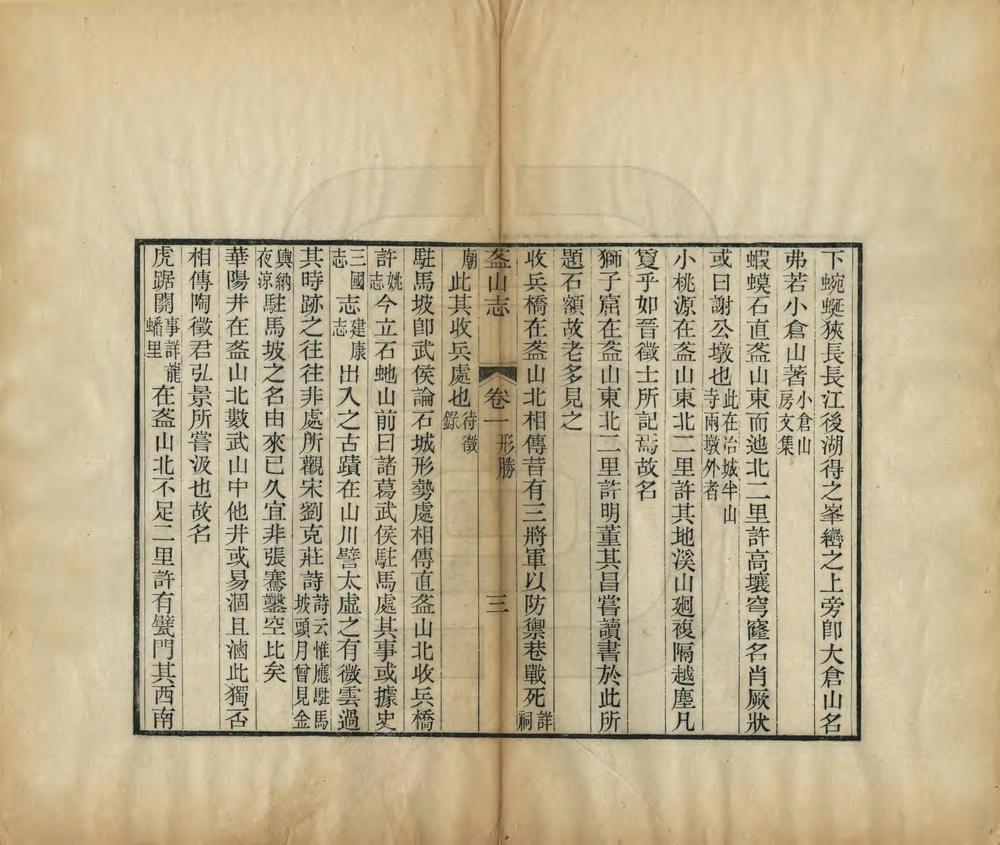 下蜿蜒狹長長江後湖得之峯巒之上旁卽大倉山名
弗若小倉山著小倉山房文集
蝦蟆石直盋山東而迆北二里許高壤穹窿名肖厥狀
或曰謝公墩也此在冶城半山寺兩墩外者
小桃源在盋山東北二里許其地溪山廻複隔越塵凡
敻乎如晉徵士所記焉故名
獅子窟在盋山東北二里許明董其昌嘗讀書於此所
題石額故老多見之
收兵橋在盋山北相傳昔有三將軍以防禦巷戰死詳祠
盋山志 卷一 形勝 三
廟此其收兵處也待徵錄
駐馬坡卽武侯論石城形勢處相傳直盋山北收兵橋
許姚志今立石虵山前曰諸葛武侯駐馬處其事或據史
三國志志建康志出入之古蹟在山川譬太虛之有微雲過
其時跡之往往非處所觀宋劉克莊詩詩云惟應駐馬坡頭月曾見金
輿納夜涼駐馬坡之名由來已久宜非張騫鑿空比矣
華陽井在盋山北數武山中他井或易涸且滷此獨否
相傳陶徵君弘景所嘗汲也故名
虎踞關事詳龍蟠里在盋山北不足二里許有甓門其西南